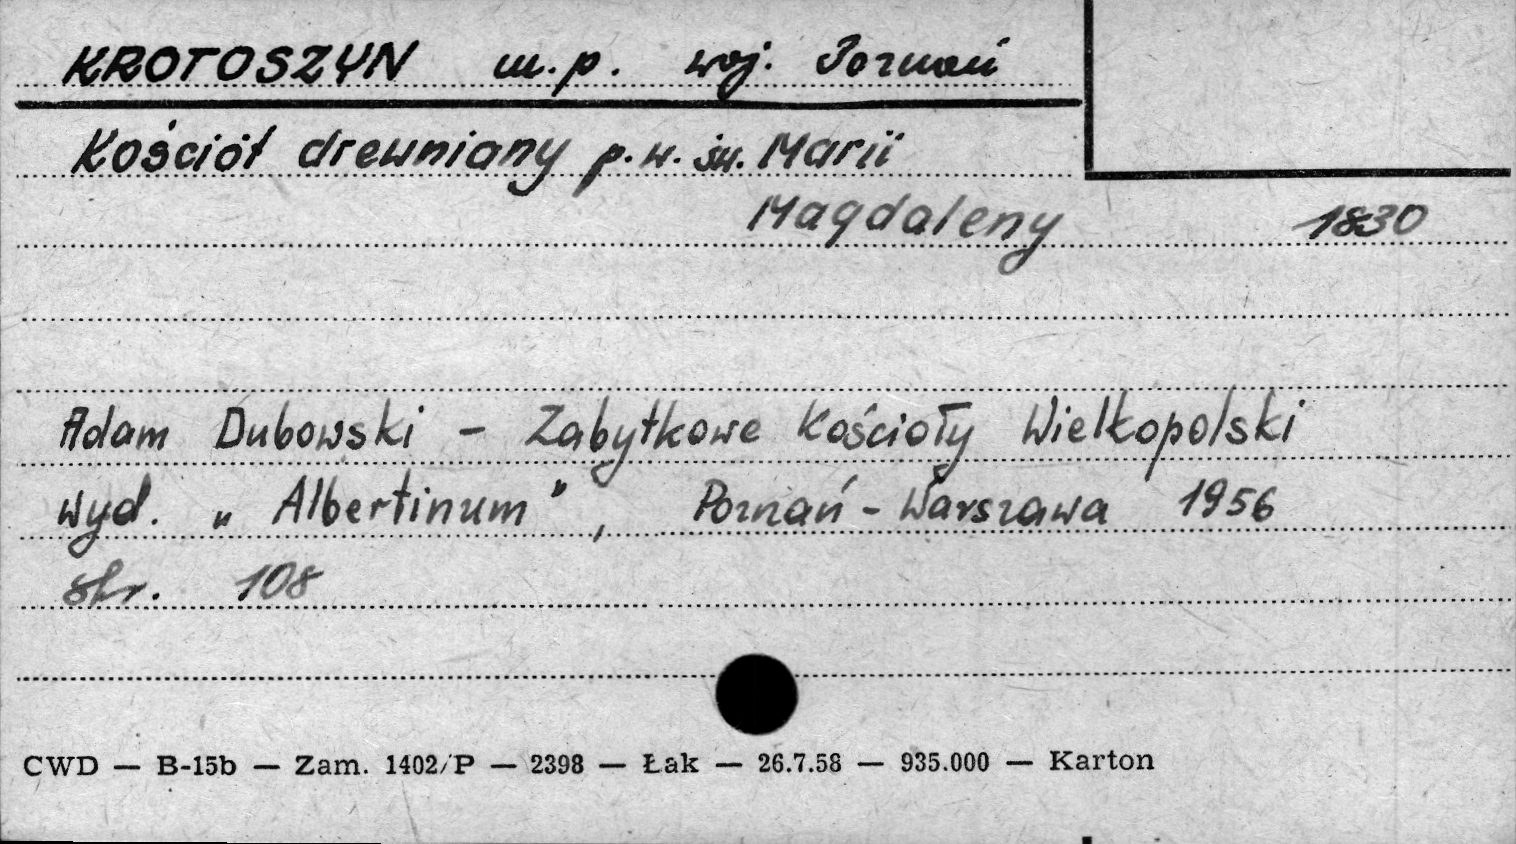 KROTOSZYN m.p. woj. Poznań
Kościół drewniany p.w. św. Marii
Magdaleny 1830
Adam Dubowski - Zabytkowe Kościoły Wielkopolski
wyd. „Albertinum”, Poznań - Warszawa 1956
str. 108
CWD — B-15b — Zam. 1402/P — 2398 — Łak — 26.7.58 — 935.000 — Karton